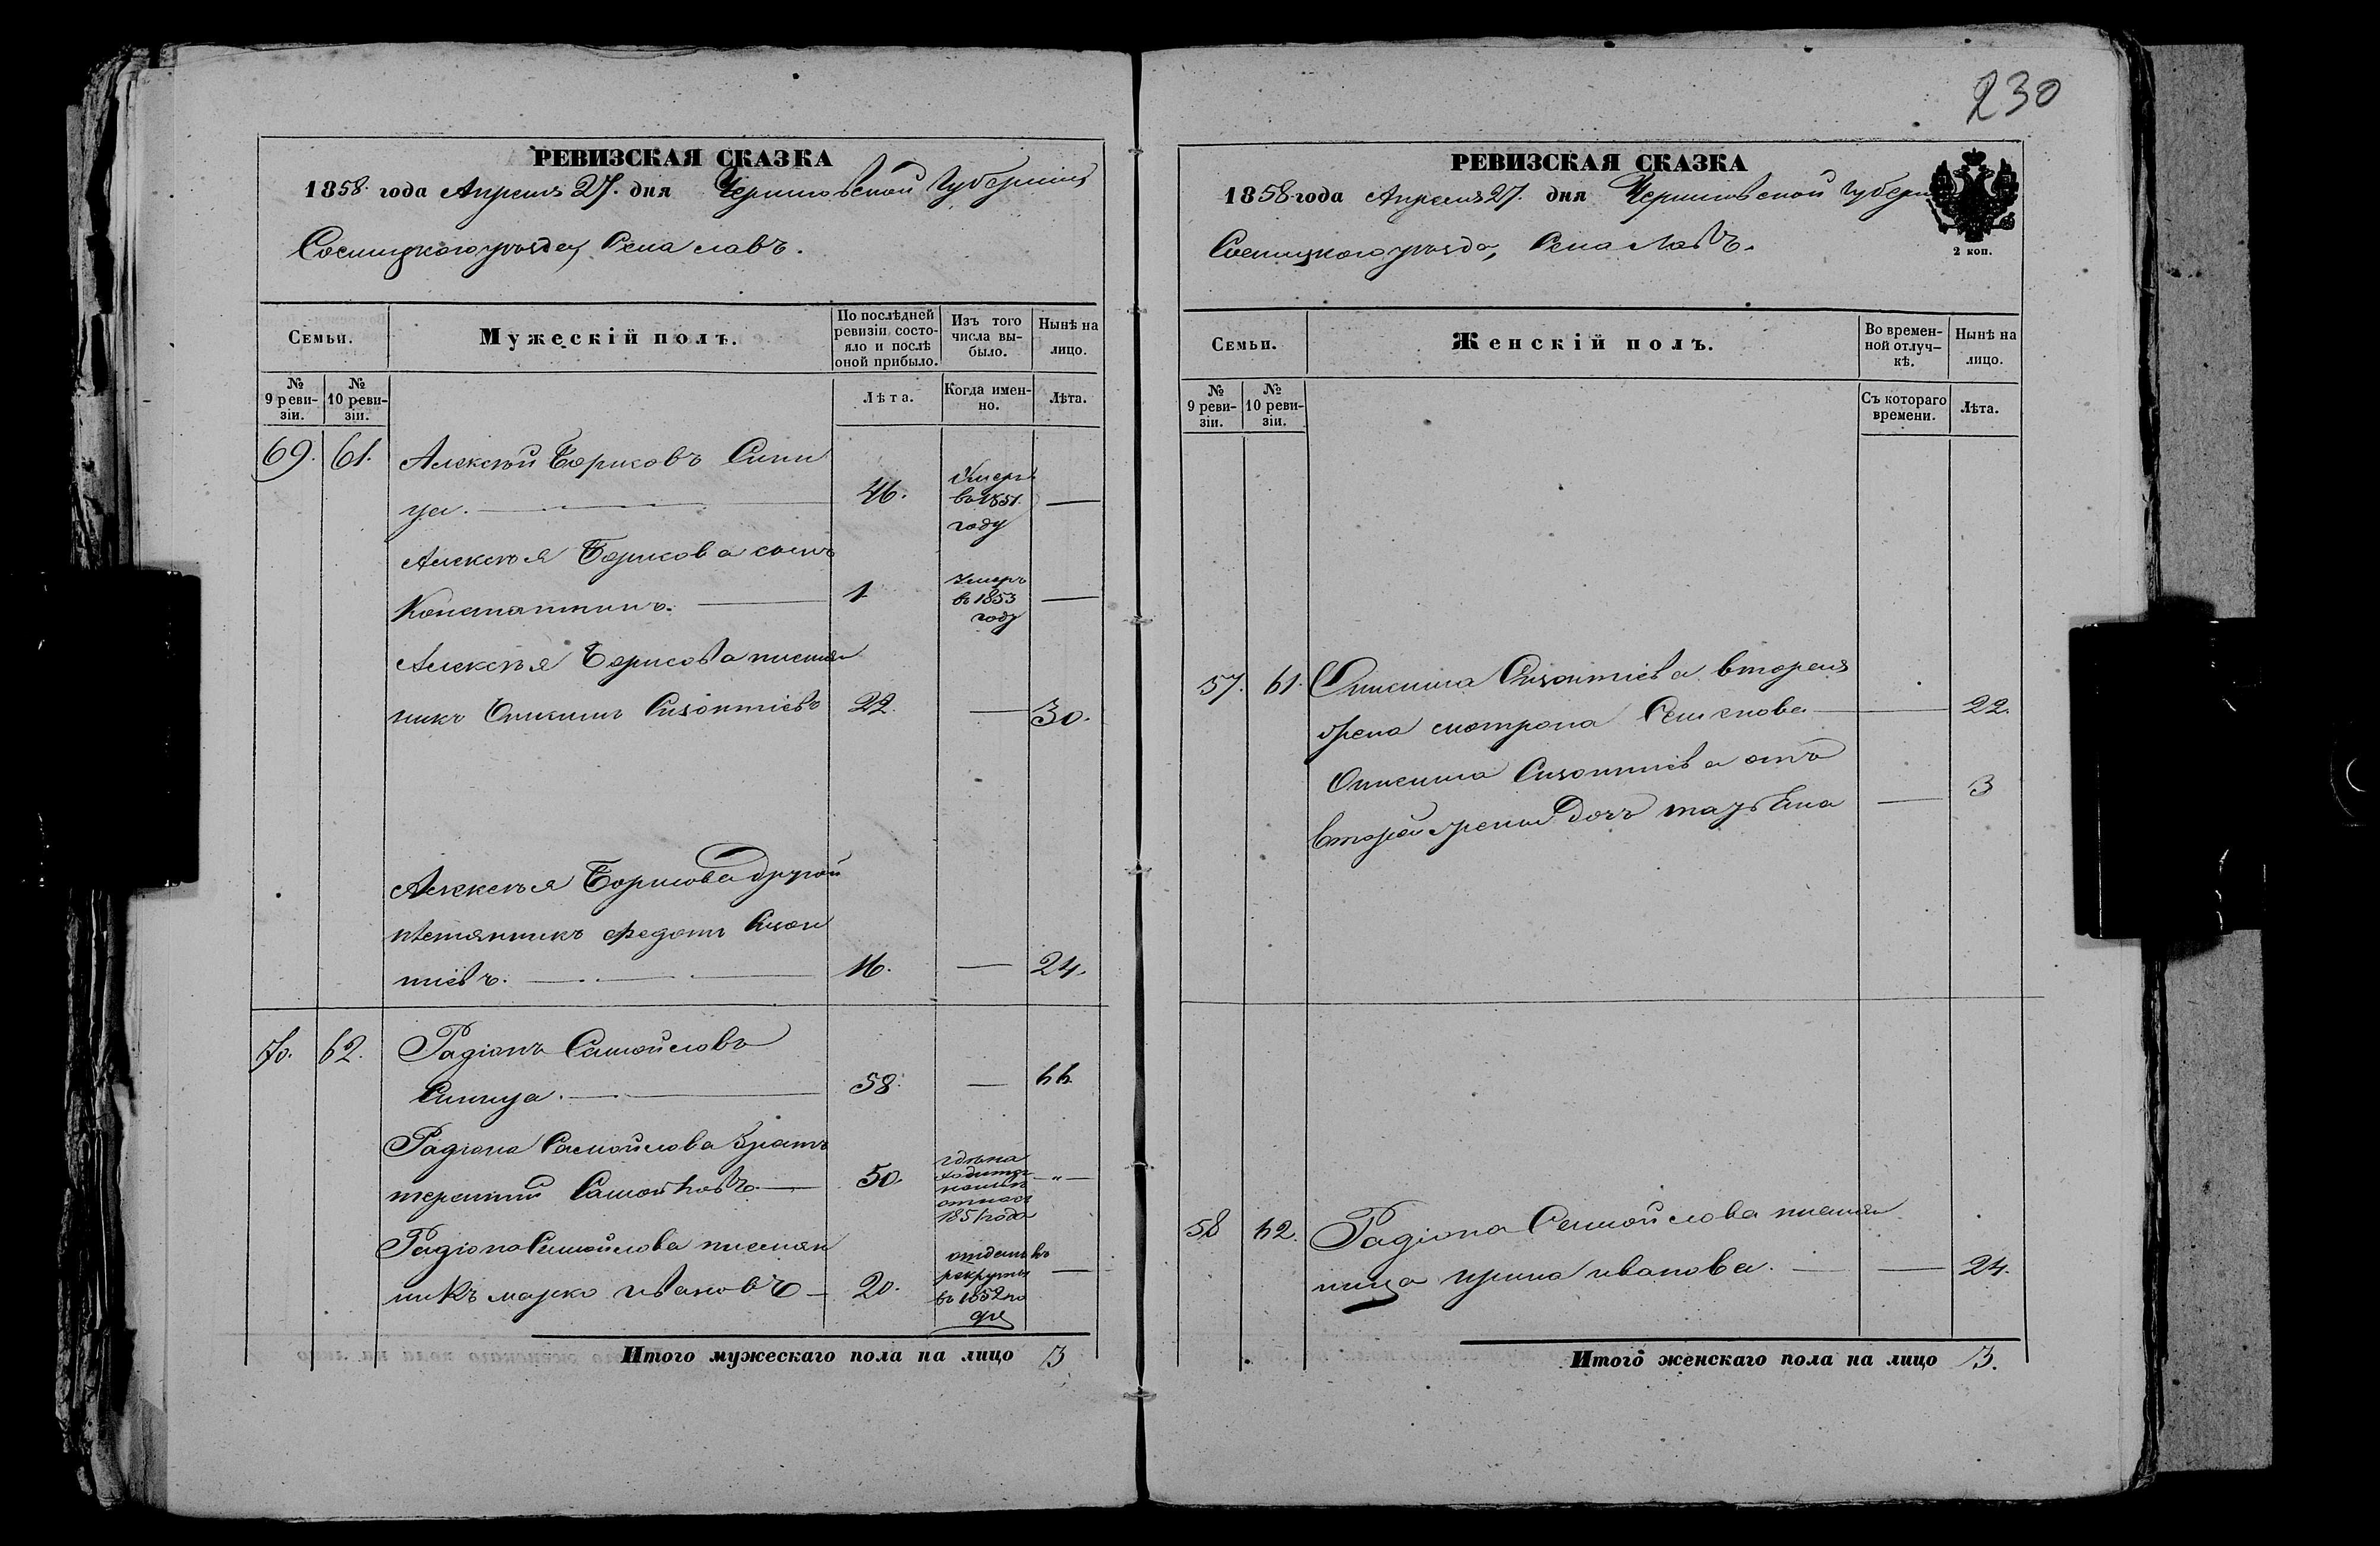 РЕВИЗСКАЯ СКАЗКА
1858 года Апреля 27. дня Черниговской Губернии
Сосницкого уезда, Села Лавъ.
Семьи.
Мужескій полъ.
По послѣдней ревизіи состояло и послѣ оной прибыло.
Изъ того числа выбыло.
Нынѣ на лицо.
№ 9 ревизіи.
№ 10 ревизіи.
Лѣта.
Когда именно.
Лѣта.
69. 61. Алексѣй Борисовъ Сини
ца. 46. Умеръ в 1851. году —
Алексѣя Борисова сынъ
Константинъ. 1 Умеръ въ 1853 году —
Алексѣя Борисова племян
никъ Онисимъ Сизонтіевъ 22. — 30.
Алексѣя Борисова другой
племянникъ Федотъ Сизон
тіевъ. 16. — 24.
70. 62. Радіонъ Самойловъ
Синица. 58. — 66.
Радіона Самойлова братъ
терентий Самойловъ. 50. 1851 года — „ —
Радіона Самойлова племян
никъ марко ивановъ — 20. отданъ въ рекруты въ 1852 го ду —
Итого мужескаго пола на лицо 3
230
РЕВИЗСКАЯ СКАЗКА
1858 года Апреля 27. дня Черниговской Губерн
Сосницкого уезда, Села Лавъ.
2 коп.
Семьи.
Женскій полъ.
Во временной отлучкѣ.
Нынѣ на лицо.
№ 9 ревизіи.
№ 10 ревизіи.
Съ котораго времени.
Лѣта.
57. 61. Онисима Сизонтіева вторая
жена Семенова — 22.
Онисима Сизонтіева отъ
второй жены дочъ татьяна — 3
58 62. Радіона Самойлова племян
ница ирина иванова. — 24.
Итого женскаго пола на лицо 3.